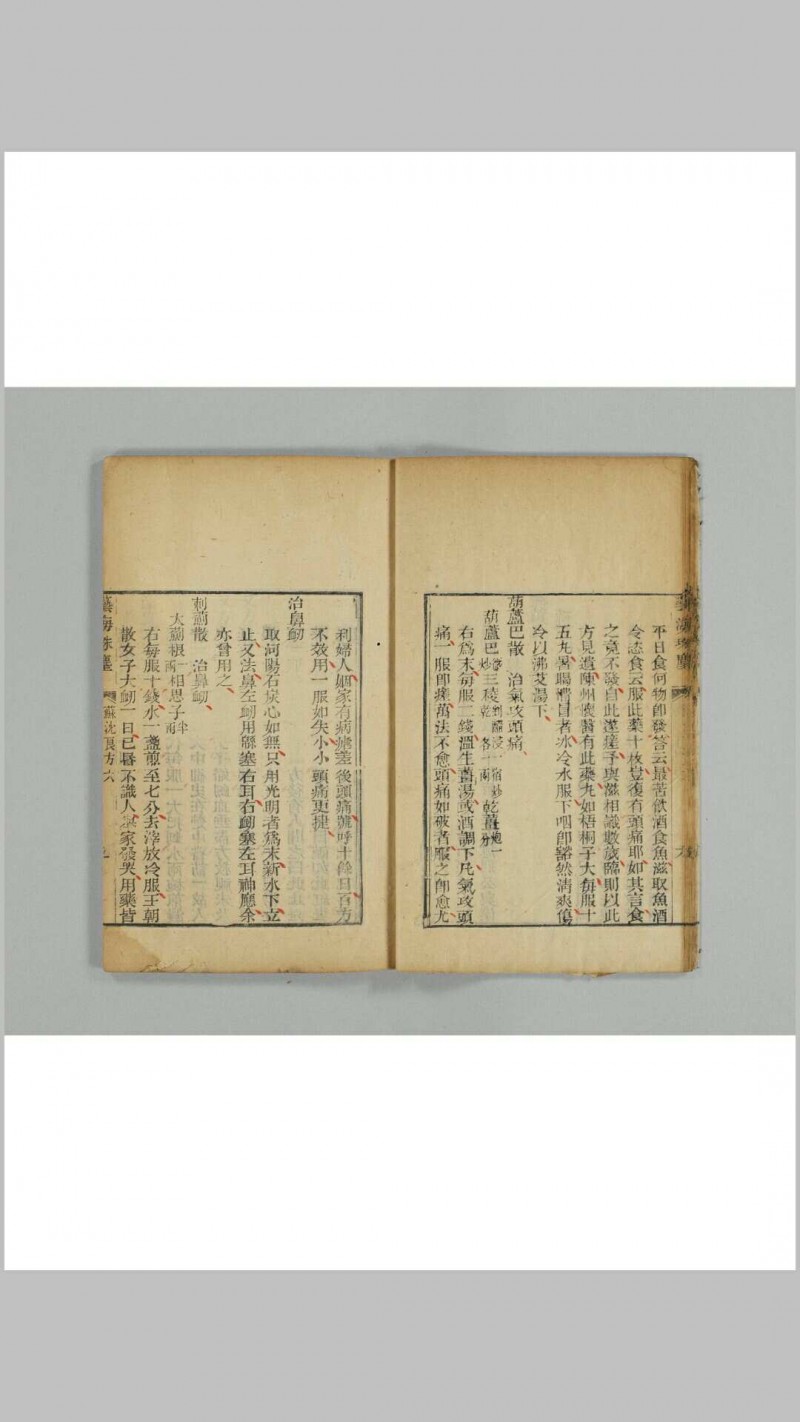 平日食何物卽發答云最苦飲酒食魚滋取魚酒
令恣食云服此藥十枚豈復有頭痛耶如其言食
之竟不發自此遂瘥予與滋相識數歲臨別以此
方見遺陳州懷醫有此藥丸如梧桐子大每服十
五丸暑暍懵冒者冰冷水服下咽卽豁然清爽傷
冷以沸艾湯下
葫蘆巴散 治氣攻頭痛
葫蘆巴炒三稜剉醋浸一宿炒乾各一兩乾薑炮一分
右爲末每服二錢溫生薑湯或酒調下凡氣攻頭
痛一服卽瘥萬法不愈頭痛如破者服之卽愈尤
利婦人姻家有病瘧差後頭痛號呼十餘日百方
不效用一服如失小小頭痛更捷
治鼻衂
取河陽石炭心如無只用光明者爲末新水下立
止又法鼻左衂用緜塞右耳右衂塞左耳神應余
亦曾用之
刺薊散 治鼻衂
大薊根一兩相思子半兩
右每服十錢水一盞煎至七分去滓放冷服王朝
散女子大衂一日已昏不識人舉家發哭用藥皆
藝海珠塵 蘇沈良方 六